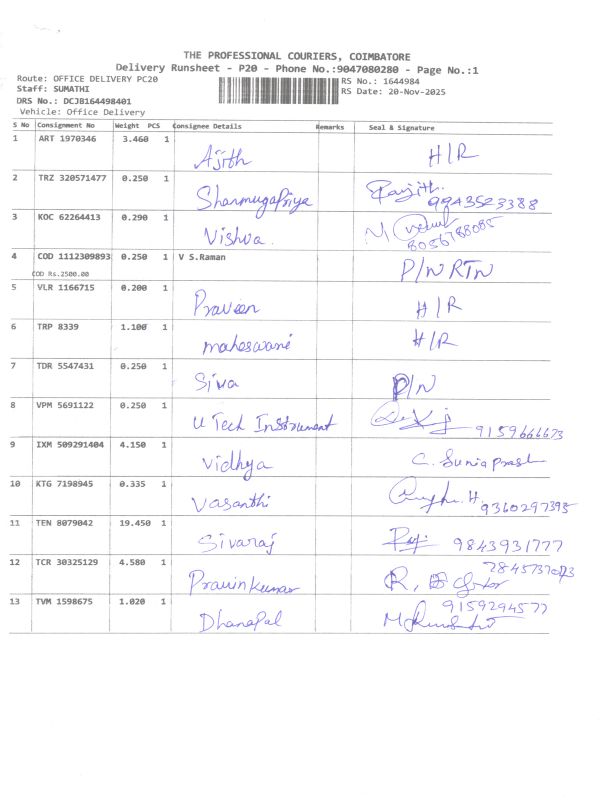 THE PROFESSIONAL COURIERS, COIMBATORE
Delivery Runsheet - P20 - Phone No.:9047080280 - Page No.:1
Route: OFFICE DELIVERY PC20
RS No.: 1644984
Staff: SUMATHI
RS Date: 20-Nov-2025
DRS No.: DCJB164498401
Vehicle: Office Delivery
S No Consignment No Weight PCS Consignee Details Remarks Seal & Signature
1 ART 1970346 3.460 1 Ajith H/R
2 TRZ 320571477 0.250 1 Shanmugapriya 9943523388
3 KOC 62264413 0.290 1 Vishva 8056788085
4 COD 1112309893 0.250 1 V S.Raman P/N RTN
COD Rs.2500.00
5 VLR 1166715 0.200 1 Praveen H/R
6 TRP 8339 1.100 1 maheswari H/R
7 TDR 5547431 0.250 1 Siva P/N
8 VPM 5691122 0.250 1 U Tech Instrument 9159666673
9 IXM 509291404 4.150 1 Vidhya
10 KTG 7198945 0.335 1 Vasanthi 9360297395
11 TEN 8079042 19.450 1 Sivaraj 9843931777
12 TCR 30325129 4.580 1 Pravin kumar
13 TVM 1598675 1.020 1 Dhanapal 9159294577